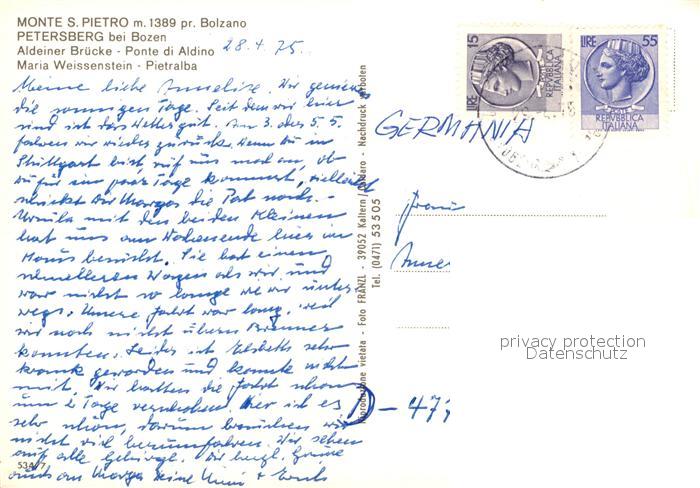 MONTE S. PIETRO m. 1389 pr. Bolzano
PETERSBERG bei Bozen
Aldeiner Brücke - Ponte di Aldino
Maria Weissenstein - Pietralba
28.4.75.
Meine liebe Annelise. Wir genießen
die sonnigen Tage. Seit dem wir hier
sind ist das Wetter gut. Am 3. oder 5. 5.
fahren wir wieder zurück. Wenn Du in
Stuttgart bist, ruf uns mal an, ob
Du für ein paar Tage kommst, vielleicht
schickt Dir Margos die Post nach.
Ursula mit den beiden Kleinen
hat uns am Wochenende hier im
Haus besucht. Sie hat einen
schnelleren Wagen als wir und
war nicht so lange wie wir unter-
wegs. Unsere Fahrt war lang, weil
wir noch nicht übern Brenner
konnten. Leider ist Elsbeth sehr
krank geworden und konnte nicht
mit. Wir hatten die Fahrt schon
um 2 Tage verschoben. Hier ist es
sehr schön, darum brauchen wir
nicht viel herumfahren. Wir sehen
auf alle Gebirge. Dir herzl. Grüße
auch an Margos Deine
534/7
Riproduzione vietata - Foto FRANZL - 39052 Kaltern/Caldaro - Nachdruck verboten
Tel. (0471) 53505
LIRE 15
POSTE
REPVBBLICA
ITALIANA
LIRE 55
POSTE
REPVBBLICA
ITALIANA
GERMANIA
Frau
Anne
D - 47
privacy protection
Datenschutz